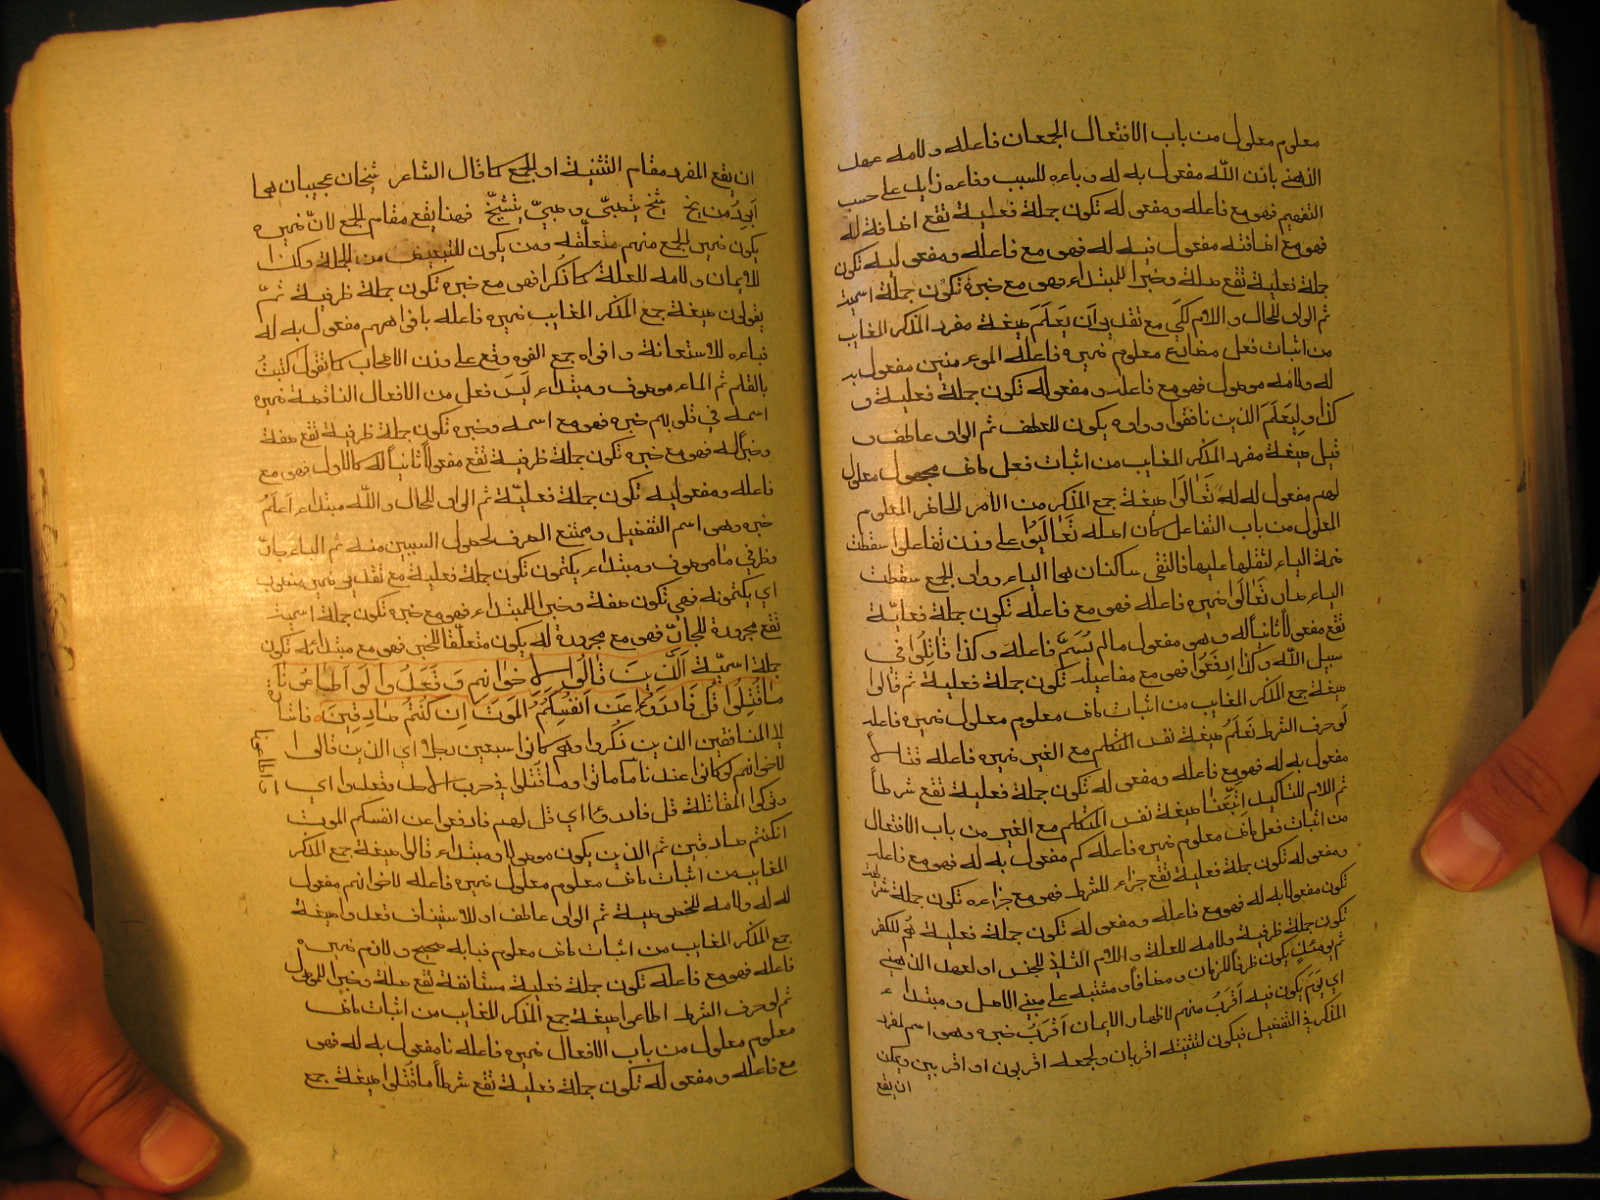 معلوم معلول من باب الافتعال الجمعان فاعله ولامه عهد
الذهني باذن الله مفعول به له وباءه للسبب وفاءه زايل على حسب
التفهيم فهو مع فاعله ومفعوله تكون جملة فعلية تقع اضافة له
فهو مع اضافته مفعول فيه له فهو مع فاعله ومفعوليه تكون
جملة فعلية تقع صلة وخبرا للمبتداء وهو مع خبره تكون جملة اسمية
ثم الواو للحال و اللام لكي مع تقدير ان يعلم صيغة مفرد المذكر الغايب
من اثبات فعل مضارع معلوم ضميره فاعله المومنين مفعول به
له ولامه موصول فهو مع فاعله ومفعوله تكون جملة فعلية و
كذا وليعلم الذين نافقوا وواوه يكون للعطف ثم الواو عاطف و
قيل صيغة مفرد المذكر الغايب من اثبات فعل ماض مجهول معلول
لهم مفعول له له تعالوا صيغة جمع المذكر من الامر الحاضر المعلوم
المعلول من باب التفاعل كان اصله تعاليوا على وزن تفاعلوا سقطت
ضمة الياء لثقلها عليها فالتقى ساكنان هما الياء وواو الجمع سقطت
الياء صار تعالوا ضميره فاعله فهو مع فاعله تكون جملة فعلية
تقع مفعولا ثانيا له وهو مفعول مالم يسم فاعله وكذا قاتلوا في
سبيل الله وكذا ادفعوا فهو مع مفاعيله تكون جملة فعلية ثم قالوا
صيغة جمع المذكر الغايب من اثبات ماض معلوم معلول ضميره فاعله
لو حرف الشرط نعلم صيغة نفس المتكلم مع الغير ضميره فاعله قتالا
مفعول به له فهو مع فاعله ومفعوله تكون جملة فعلية تقع شرطا
ثم اللام للتاكيد اتبعنا صيغة نفس المتكلم مع الغير من باب الافتعال
من اثبات فعل ماض معلوم ضميره فاعله كم مفعول به له فهو مع فاعله
ومفعوله تكون جملة فعلية تقع جزاء للشرط فهو مع جزاءه تكون جملة شرطية
تكون مفعولا به له فهو مع فاعله ومفعوله تكون جملة فعلية هم للكفر
تكون جملة ظرفية ولامه للعلة و اللام الثاني للجنس او لعهد الذهني
ثم يومئذ يكون ظرفا للزمان ومضافا ومشتبه على مبني الاصل ومبتداء
اي يوم يكون فيه اقرب منهم لاظهار الايمان اقرب خبره وهو اسم لمفرد
المذكر في التفضيل فيكون لتثنيته اقربان ولجمعه اقربون او اقربين ويمكن
ان يقع
ان يقع المفرد مقام التثنية او للجمع كما قال الشاعر شيخان عجيبان هما
ابرد من يخ شيخ يتصبى و صبي يتشيخ فهنا يقع مقام الجمع لان ضميره
يكون ضمير الجمع منهم متعلقه ومن يكون للتبعيض من الجملة وكذا
للايمان ولامه للعلة كما ذكرا فهو مع خبره تكون جملة ظرفية ثم
يقولون صيغة جمع المذكر الغايب ضميره فاعله بافواههم مفعول به له
فباءه للاستعانة و افواه جمع الفوه وقع على وزن الاصحاب كما تقول كتبت
بالقلم ثم الماء موصوف ومبتداء ليس فعل من الافعال الناقصة ضميره
اسمه في قلوبهم خبره فهو مع اسمه وخبره تكون جملة ظرفية تقع صفة
وخبرا له فهو مع خبره تكون جملة ظرفية تقع مفعولا ثانيا له كالاول فهو مع
فاعله ومفعوليه تكون جملة فعلية ثم الواو للحال و الله مبتداء اعلم
خبره وهو اسم التفضيل وممتنع الصرف لحصول السببين منه ثم الباء جار
وظرفي ما موصوف ومبتداء يكتمون تكون جملة فعلية مع تقدير ضمير منصوب
اي يكتمونه فهي تكون صفة وخبرا للمبتداء فهو مع خبره تكون جملة اسمية
تقع مجرورة للجار فهو مع مجروره له يكون متعلقا للخبر فهو مع مبتدائه تكون
جملة اسمية الذين قالوا لاخوانهم وقعدوا لو اطاعونا
ما قتلوا قل فادرؤا عن انفسكم الموت ان كنتم صادقين فاشارة
الى المنافقين الذين نكروا وهم كانوا سبعين رجلا اي الذين قالوا
لاخوانهم لو كانوا عندنا ما ماتوا وما قتلوا في حرب وقعدوا اي
وتركوا المقاتلة قل فادرؤا اي قل لهم فادفعوا عن انفسكم الموت
انكنتم صادقين ثم الذين يكون موصولا ومبتداء قالوا صيغة جمع المذكر
الغايب من اثبات ماض معلوم معلول ضميره فاعله لاخوانهم مفعول
له له ولامه للخصوصية ثم الواو عاطف او للاستيناف قعدوا صيغة
جمع المذكر الغايب من اثبات ماض معلوم فبابه صحيح ولازم ضميره
فاعله فهو مع فاعله تكون جملة فعلية مستانفة تقع صلة وخبرا للموصول
ثم لو حرف الشرط اطاعوا صيغة جمع المذكر للغايب من اثبات ماض
معلوم معلول من باب الافعال ضميره فاعله نا مفعول به له فهو
مع فاعله ومفعوله تكون جملة فعلية تقع شرطا ما قتلوا صيغة جمع